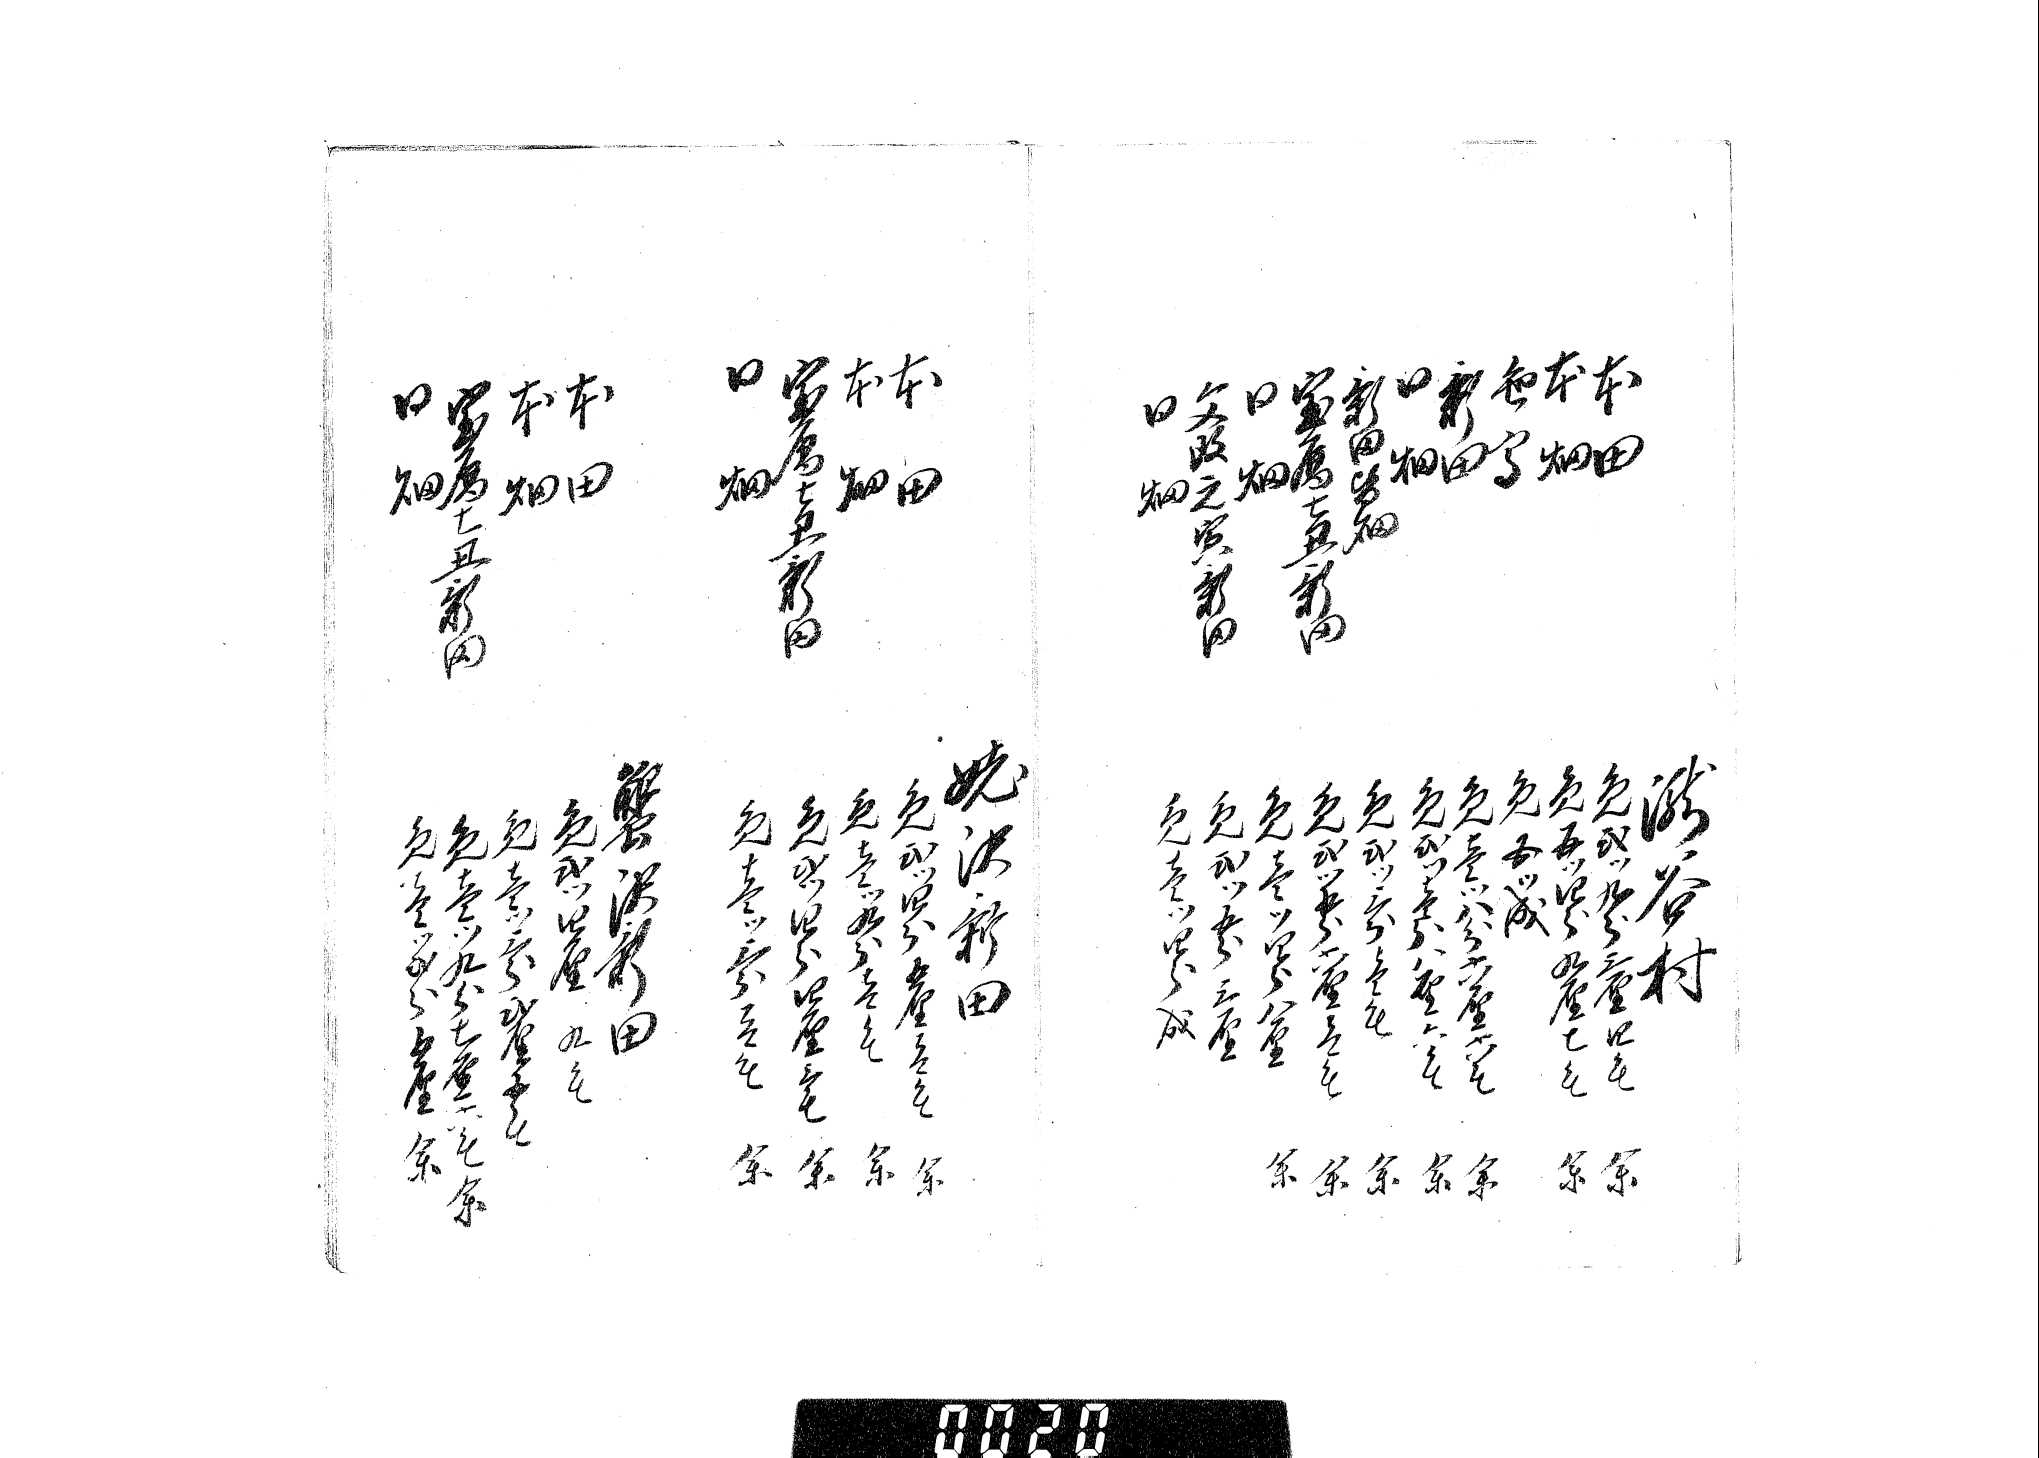 瀧谷村
本田 免弐ツ九分三厘四毛 余
本畑 免五ツ四分九厘七毛 余
免五ツ成
新田 免壱ツ八分六厘六毛 余
口畑 免弐ツ壱分八厘六毛 余
新田 免弐ツ三分壱毛 余
宝暦七丑新田 免弐ツ五分六厘壱毛 余
口畑 免壱ツ四分八厘 余
文政元寅新田 免弐ツ五分三厘
口畑 免壱ツ四分成
沢新田
本田 免弐ツ四分五厘壱毛 余
本畑 免壱ツ九分壱毛 余
宝暦七丑新田 免弐ツ四分四厘三毛 余
口畑 免壱ツ三分壱毛 余
沢新田
本田 免弐ツ四厘九毛
本畑 免壱ツ三分弐厘
宝暦七丑新田 免壱ツ九分七厘六毛 余
口畑 免壱ツ弐分五厘 余
0020